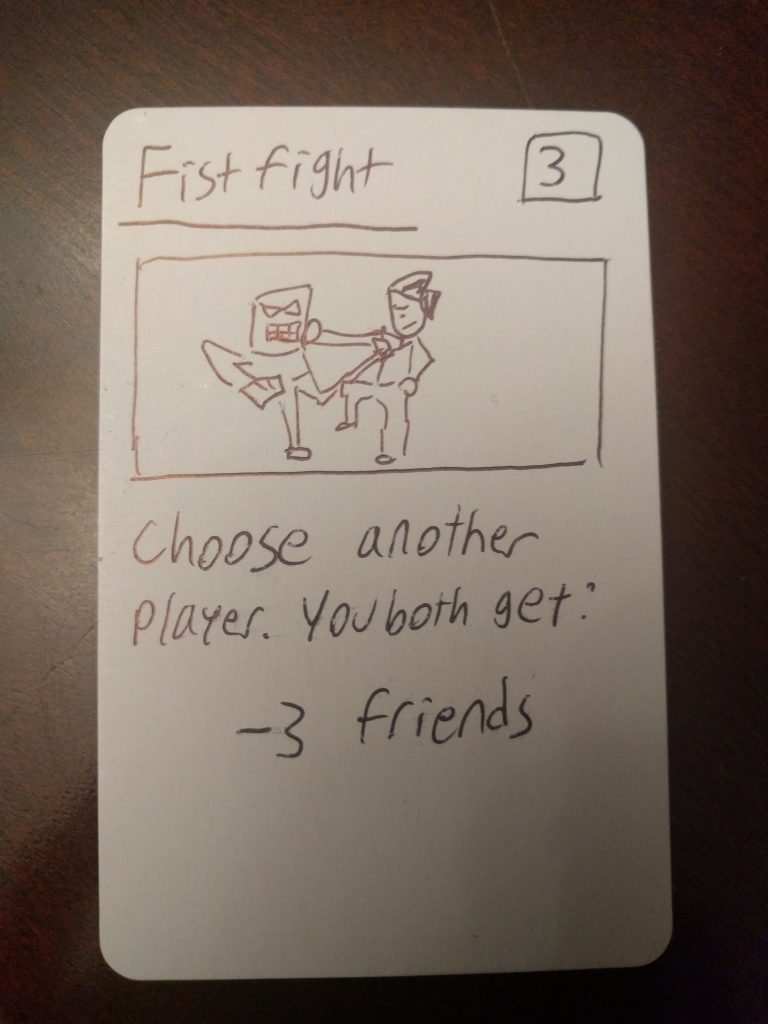 Fist fight
3
Choose another
player. You both get:
-3 friends